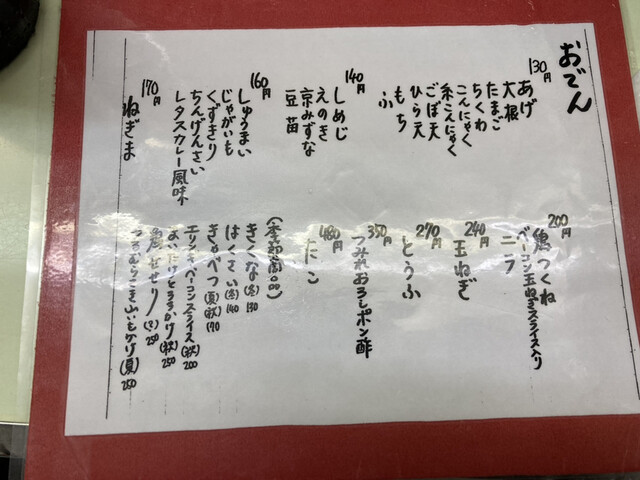 おでん
130円
あげ
大根
たまご
ちくわ
こんにゃく
糸こんにゃく
ごぼ天
ひら天
もち
ふ
140円
しめじ
えのき
京みずな
豆苗
160円
しゅうまい
じゃがいも
くずきり
ちんげんさい
レタスカレー風味
170円
ねぎま
200円
鶏つくね
ベーコン玉ねぎスライス入り
ニラ
240円
玉ねぎ
270円
とうふ
350円
つみれおろしポン酢
480円
たこ
(季節商品)
きくな(冬)130
はくさい(冬)140
きゃべつ(夏秋)170
エリンギベーコンスライス(秋)200
(秋)250
250
山いも(夏)250